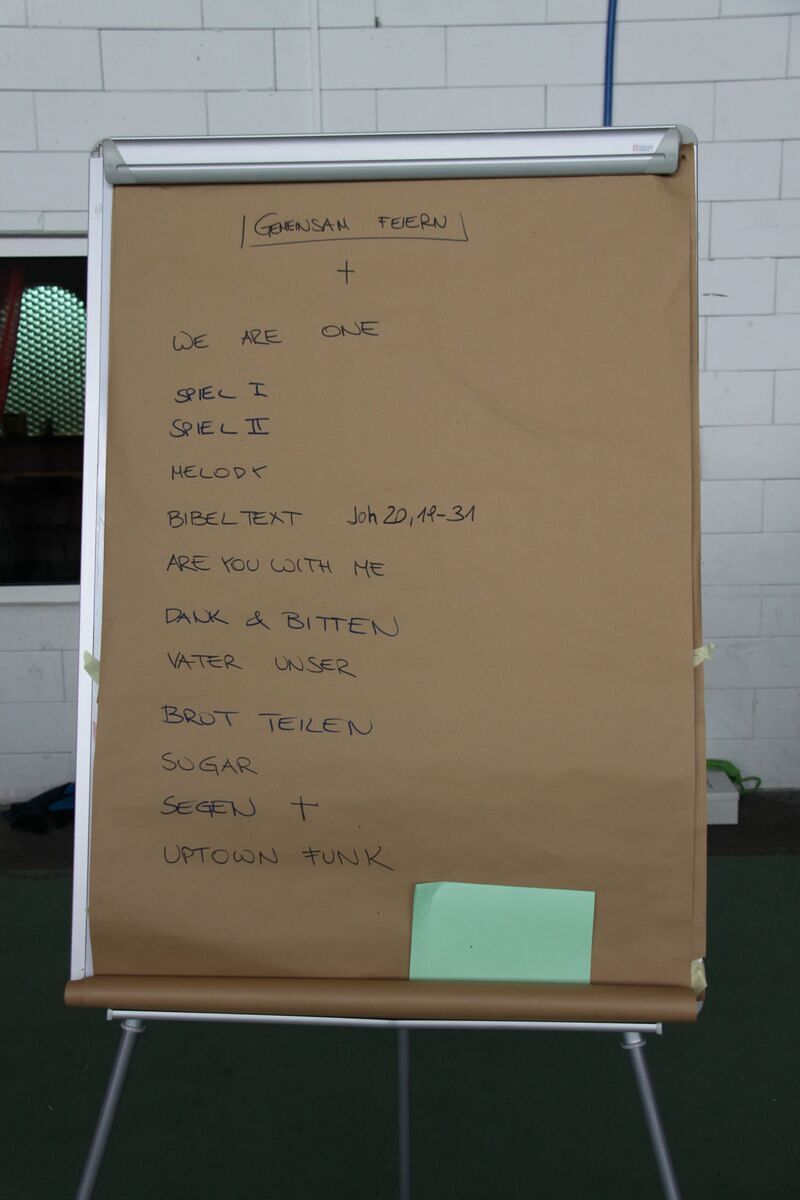 GEMEINSAM FEIERN
†
WE ARE ONE
SPIEL I
SPIEL II
MELODY
BIBELTEXT Joh 20,19-31
ARE YOU WITH ME
DANK & BITTEN
VATER UNSER
BROT TEILEN
SUGAR
SEGEN †
UPTOWN FUNK